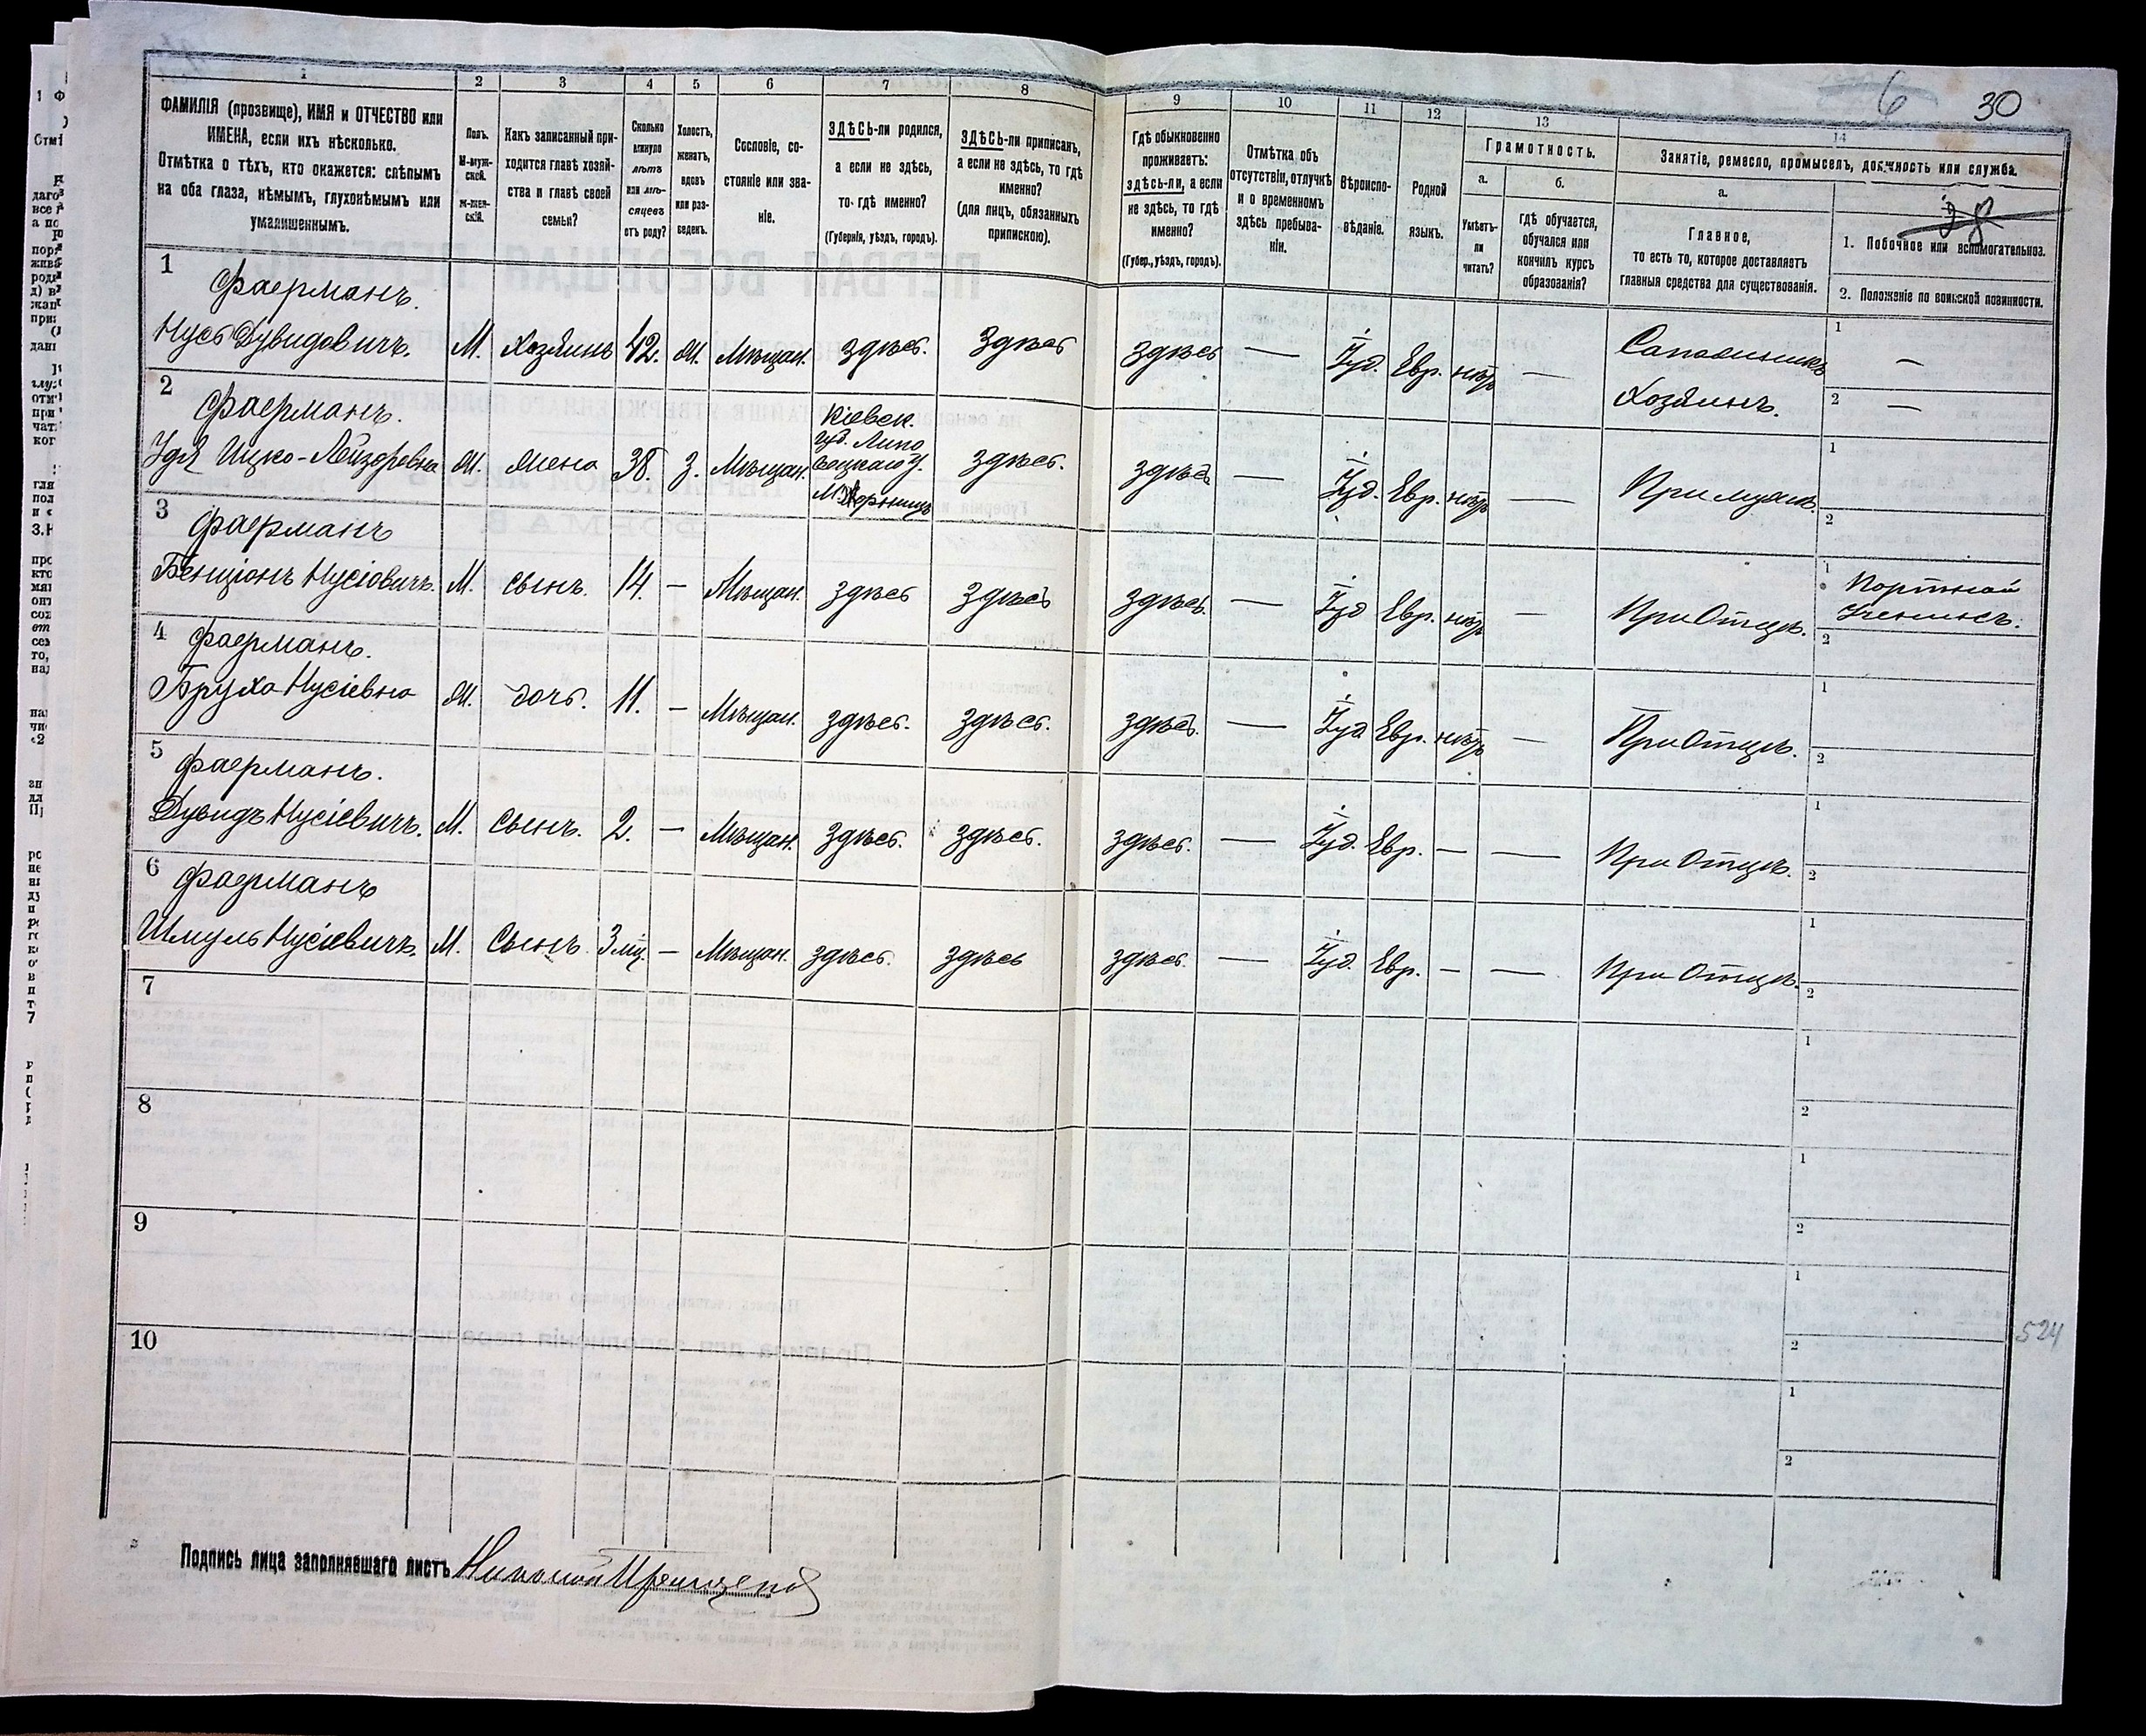 6 30
1 2 3 4 5 6 7 8 9 10 11 12 13 14
ФАМИЛІЯ (прозвище), ИМЯ и ОТЧЕСТВО или
ИМЕНА, если ихъ нѣсколько.
Отмѣтка о тѣхъ, кто окажется: слѣпымъ
на оба глаза, нѣмымъ, глухонѣмымъ или
умалишеннымъ.
Полъ.
М-муж-
ской.
Ж-жен-
скій.
Какъ записанный при-
ходится главѣ хозяй-
ства и главѣ своей
семьи?
Сколько
минуло
лѣтъ
или мѣ-
сяцевъ
отъ роду?
Холостъ,
женатъ,
вдовъ
или раз-
веденъ.
Сословіе, со-
стояніе или зва-
ніе.
ЗДѢСЬ-ли родился,
а если не здѣсь,
то гдѣ именно?
(Губернія, уѣздъ, городъ).
ЗДѢСЬ-ли приписанъ,
а если не здѣсь, то гдѣ
именно?
(для лицъ, обязанныхъ
припискою).
Гдѣ обыкновенно
проживаетъ:
здѣсь-ли, а если
не здѣсь, то гдѣ
именно?
(Губер., уѣздъ, городъ).
Отмѣтка объ
отсутствіи, отлучкѣ
и о временномъ
здѣсь пребыва-
ніи.
Вѣроиспо-
вѣданіе.
Родной
языкъ.
Грамотность.
а.
Умѣетъ-
ли
читать?
б.
гдѣ обучается,
обучался или
кончилъ курсъ
образованія?
Занятіе, ремесло, промыселъ, должность или служба.
а.
Главное,
то есть то, которое доставляетъ
главныя средства для существованія.
28
1. Побочное или вспомогательное.
2. Положеніе по воинской повинности.
1
Фаерманъ.
Нусь Дувидовичъ. М. Хозяинъ 42. Ж. Мѣщан. здѣсь. Здѣсь здѣсь — Іуд. Евр. нѣтъ — Сапожникъ 1 —
Хозяинъ. 2 —
2
Фаерманъ.
Удя Ицко-Лейзоровна Ж. жена 38. З. Мѣщан. Кіевск.
губ. Липо
вецкаго у.
здѣсь. здѣсь — Іуд. Евр. нѣтъ — При мужѣ. 1
2
3
Фаерманъ
Бенціонъ Нусіовичъ. М. сынъ. 14. — Мѣщан. здѣсь здѣсь здѣсь. — Іуд Евр. нѣтъ — При Отцѣ. 1 Портной
Ученикъ.
2
4
Фаерманъ.
Бруха Нусіевна Ж. дочь. 11. — Мѣщан. здѣсь. здѣсь. здѣсь. — Іуд Евр. нѣтъ — При Отцѣ. 1
2
5
Фаерманъ.
Дувидъ Нусіевичъ. М. Сынъ. 2. — Мѣщан. здѣсь. здѣсь. здѣсь. — Іуд. Евр. — — При Отцѣ. 1
2
6
Фаерманъ
Шмуль Нусіевичъ. М. Сынъ 3 мц. — Мѣщан. здѣсь. здѣсь здѣсь. — Іуд. Евр. — — При Отцѣ. 1
2
7 1
2
8 1
2
9 1
2
10 524
1
2
Подпись лица заполнявшаго листъ